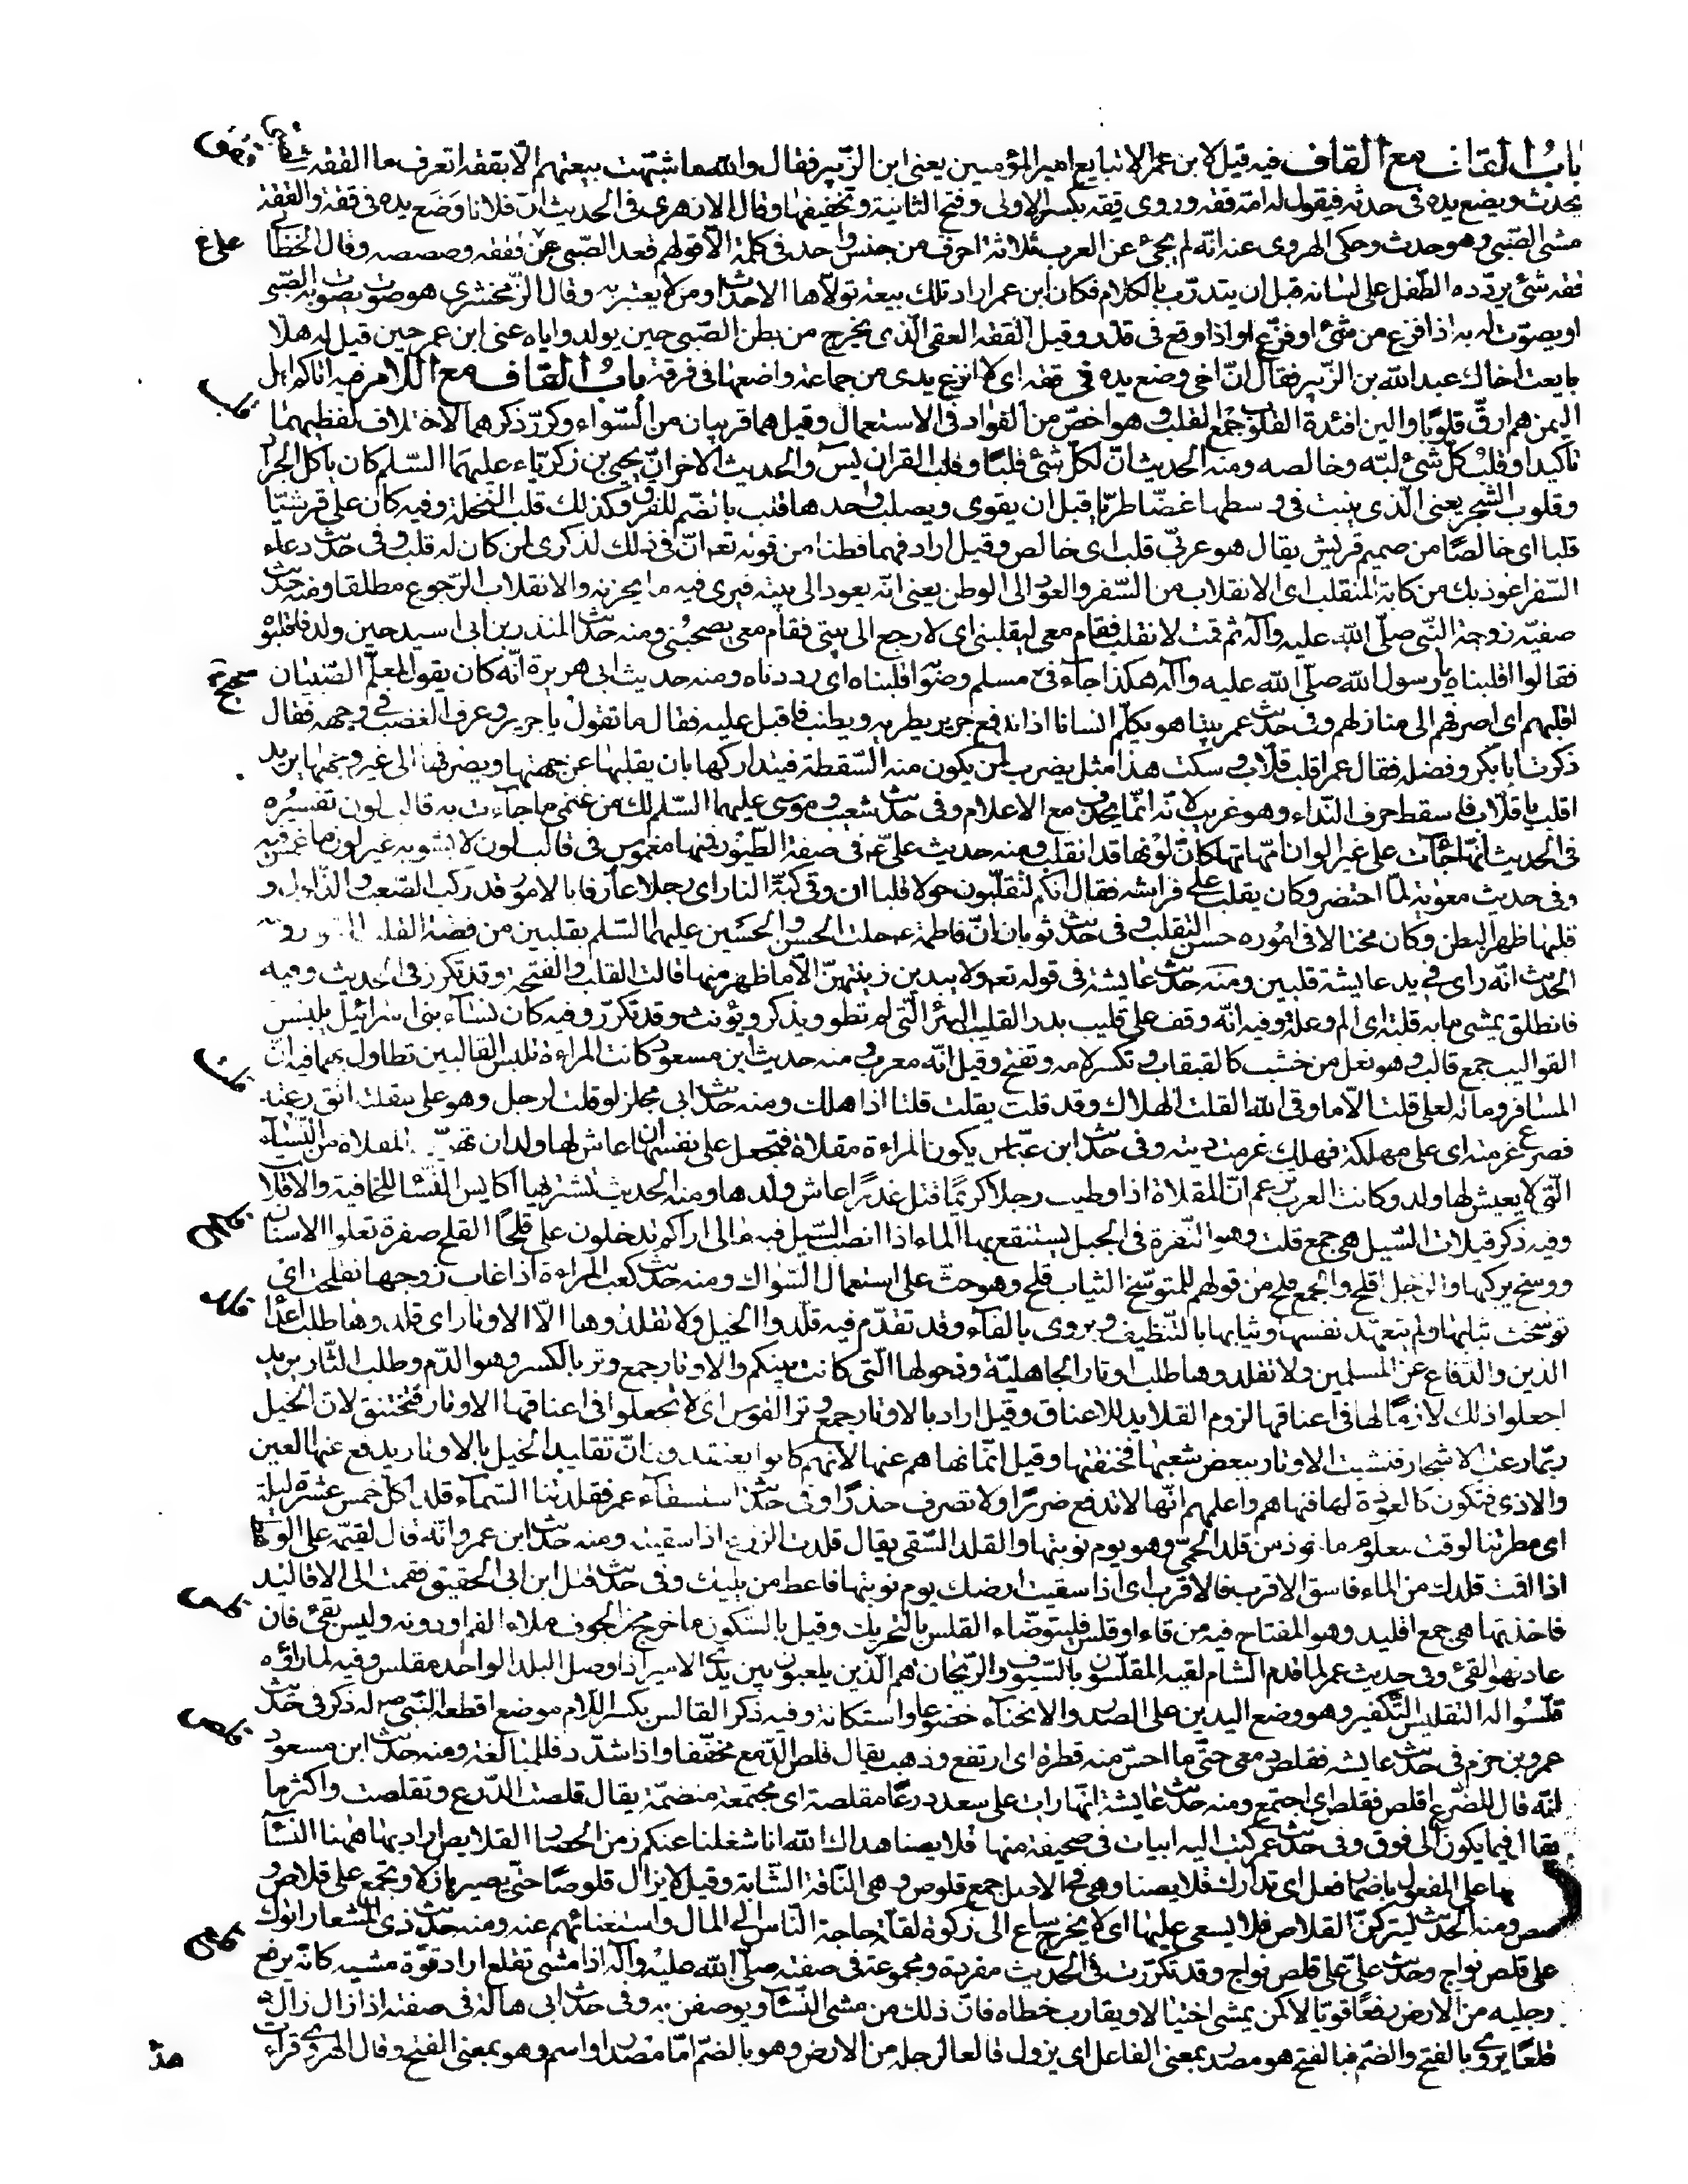 باب القاف مع القاف فيه قيل لابن عمر الا تبايع امير المؤمنين يعني ابن الزّبير فقال والله ما شبّهت بيعتهم الّا بققه اتعرف ما الققه
يحدث ويضع يده في حدثه فيقول له امّه ققه وروى ققه بكسر الاولى وفتح الثانية وتخفيفها وقال الازهري في الحديث انّ فلانا وضع يده في ققة والققة
مشى الصّبي وهو حدث وحكى الهروى عنه انّه لم يجئ عن العرب ثلاثة احرف من جنس واحد في كلمة الّا قولهم قعد الصّبي على ققفه وصصصه وقال الخطّابي
ققه شئ يردّده الطّفل على لسانه قبل ان يتدرّب بالكلام فكان ابن عمر اراد تلك بيعة تولّاها الاحداث ومن لا يعتبر به وقال الزّمخشري هو صوت يصوّت به الصّبي
او يصوّت له به اذا فزع من شئ او فزّع او اذا وقع في قذر وقيل الققة العقى الّذي يخرج من بطن الصّبي حين يولد وايّاه عنى ابن عمر حين قيل له هلّا
بايعت اخاك عبد الله بن الزّبير فقال انّ اخي وضع يده في ققه اى لا انزع يدى من جماعة واضعها في فرقة باب القاف مع اللام فيه اتاكم اهل
اليمن هم ارقّ قلوبًا والين افئدة القلوب جمع القلب وهو اخصّ من الفؤاد في الاستعمال وقيل هما قريبان من السّواء وكرّر ذكرهما لاختلاف لفظيهما
تاكيدا وقلب كلّ شئ لبّه وخالصه ومنه الحديث انّ لكلّ شئ قلبًا وقلب القران يس والحديث الاخر انّ يحيى بن زكريّاء عليهما السّلم كان ياكل الجراد
وقلوب الشجر يعنى الّذى ينبت في وسطها غضّا طريّا قبل ان يقوى ويصلب واحدها قلب بالضّم للفرق وكذلك قلب النّخلة وفيه كان على قرشيّا
قلبا اى خالصًا من صميم قريش يقال هو عربىّ قلب اى خالص وقيل اراد فهما فطنا من قوله تعه انّ في ذلك لذكرى لمن كان له قلب وفى حديث دعاء
السّفر اعوذ بك من كابة المنقلب اى الانقلاب من السّفر والعود الى الوطن يعنى انّه يعود الى بيته فيرى فيه ما يحزنه والانقلاب الرّجوع مطلقا ومنه حديث
صفيّه زوجة النّبي صلّى الله عليه وآله ثم قمت لانقلب فقام معى ليقلبنى اى لارجع الى بيتى فقام معى يصحبنى ومنه حديث المنذر بن ابى اسيد حين ولد فاقلبوه
فقالوا اقلبناه يا رسول الله صلّى الله عليه وآله هكذا جاء في مسلم وصوابه قلبناه اى رددناه ومنه حديث ابى هريرة انّه كان يقول لمعلّم الصّبيان
اقلبهم اى اصرفهم الى منازلهم وفى حديث عمر بينا هو يكلّم انسانا اذ اندفع جرير يطريه ويطنب فاقبل عليه فقال ما تقول يا جرير وعرف الغضب في وجهه فقال
ذكرت ابا بكر وفضله فقال عمر اقلب قلّاب وسكت هذا مثل يضرب لمن يكون منه السّقطة فيتداركها بان يقلبها عن جهتها ويصرفها الى غير وجهها يريد
اقلب يا قلّاب فاسقط حرف النّداء وهو غريب لانّه انّما يحذف مع الاعلام وفى حديث شعيب وموسى عليهما السّلم لك من غنمى ما جاءت به قالب لون تفسيره
في الحديث انّها جاءت على غير الوان امّهاتها كانّ لونها قد انقلب ومنه حديث علىّ عه في صفة الطّيور فمنها مغموس في قالب لون لا يشوبه غير لون ما غمس فيه
وفى حديث معوية لمّا احتضر وكان يقلب على فراشه فقال انّكم لتقلّبون حولا قلبا ان وقى كبّة النار اى رجلا عارفا بالامور قد ركب الصّعب والذّلول و
قلبها ظهرا لبطن وكان محتالا في اموره حسن التقلب وفى حديث ثوبان انّ فاطمة عه حلت الحسن والحسين عليهما السّلم بقلبين من فضة القلب
الحديث انّه راى في يد عايشة قلبين ومنه حديث عايشة في قوله تعه ولا يبدين زينتهنّ الّا ما ظهر منها قالت القلب والفتحة وقد تكرّر في الحديث وفيه
فانطلق يمشى ما به قلبة اى الم وعلة وفيه انّه وقف على قليب بدر القليب البئر الّتى لم تطو ويذكر ويؤنث وقد تكرّر وفيه كان نساء بنى اسرائيل يلبسن
القواليب جمع قالب وهو نعل من خشب كالقبقاب وتكسر لامه وتفتح وقيل انّه معرب ومنه حديث ابن مسعود كانت المراءة تلبس القالبين تطاول بهما فيه انّ
المسافر وماله لعلى قلت الّا ما وقى الله القلت الهلاك وقد قلت يقلت قلتا اذا هلك ومنه حديث ابى مجلز لو قلت لرجل وهو على مقلتة اتّق رعته
فصرع غرمته اى على مهلكة فهلك غرمت ديته وفى حديث ابن عبّاس يكون المراءة مقلاة فتجعل على نفسها ان عاش لها ولد ان تهوّده المقلاة من النّساء
الّتى لا يعيش لها ولد وكانت العرب تزعم انّ المقلاة اذا وطيت رجلا كريمًا قتل غدرًا عاش ولدها ومنه الحديث تشتريها اكايس النّساء للخافية والاقلات
وفيه ذكر قيلات السّيل هى جمع قلت وهو النّقرة في الجبل يستنقع بها الماء اذا انصبّ السّيل فيه مالى اراكم تدخلون على قلحًا القلح صفرة تعلوا الاسنان
ووسخ يركبها والرّجل اقلح والجمع قلح من قولهم للمتوسّخ الثياب قلح وهو حثّ على استعمال السّواك ومنه حديث كعب المراءة اذا غاب زوجها تقلّحت اى
توسّخت ثيابها ولم يتعهّد نفسها وثيابها بالتّنظيف ويروى بالفاء وقد تقدّم فيه قلّدوا الخيل ولا تقلّدوها الّا الاوتار اى قلّدوها طلب اعداء
الدّين والدّفاع عن المسلمين ولا تقلّدوها طلب اوتار الجاهليّة وذحولها الّتى كانت بينكم والاوتار جمع وتر بالكسر وهو الدّم وطلب الثّار يريد
اجعلوا ذلك لازمًا لها في اعناقها لزوم القلايد للاعناق وقيل اراد بالاوتار جمع وتر القوس اى لا تجعلوا في اعناقها الاوتار فتختنق لانّ الخيل
ربّما رعت الاشجار فنشبت الاوتار ببعض شعبها فخنقتها وقيل انّما نهاهم عنها لانّهم كانوا يعتقدون انّ تقليد الخيل بالاوتار يدفع عنها العين
والاذى فتكون كالعوذة لها فنهاهم واعلمهم انّها لا تدفع ضررًا ولا تصرف حذرًا وفى حديث استسقاء عمر فقلدتنا السّماء قلدا كلّ خمس عشرة ليلة
اى مطرتنا لوقت معلوم ماخوذ من قلد الحمّى وهو يوم نوبتها والقلد السّقى يقال قلدت الزرع اذا سقيته ومنه حديث ابن عمرو انّه قال لقيّمه على الوهط
اذا اقمت قلدك من الماء فاسق الاقرب فالاقرب اى اذا سقيت ارضك يوم نوبتها فاعط من يليك وفى حديث قتل ابن ابى الحقيق فقمت الى الاقاليد
فاخذتها هى جمع اقليد وهو المفتاح فيه من قاء او قلس فليتوضّاء القلس بالتحريك وقيل بالسّكون ما خرج من الجوف ملاء الفم او دونه وليس بقئ فان
عاد فهو القئ وفى حديث عمر لما قدم الشام لقيه المقلّسون بالسّيوف والرّيحان هم الّذين يلعبون بين يدى الامير اذا وصل البلد الواحد مقلّس وفيه لما راوه
قلّسوا له التقليس التّكفير وهو وضع اليدين على الصّدر والانحناء خضوعا واستكانة وفيه ذكر القالس بكسر اللّام موضع اقطعه النّبي صه له ذكر في حديث
عمرو بن حزم في حديث عايشه فقلص دمعى حتّى ما احسّ منه قطرة اى ارتفع وذهب يقال قلص الدّمع مخفّفا واذا شدّد فللمبالغة ومنه حديث ابن مسعود
انّه قال للضّرع اقلص فقلص اى اجتمع ومنه حديث عايشة انّها رات على سعد درعًا مقلصة اى مجتمعة منضمّة يقال قلصت الدّرع وتقلّصت واكثر ما
يقال فيما يكون الى فوق وفى حديث عمر كتب اليه ابيات في صحيفة منها قلايصنا هداك الله انا شغلنا عنكم زمن الحصار القلايص اراد بها ههنا النّساء
بها على المفعول باضمار فعل اى تدارك قلايصنا وهى في الاصل جمع قلوص وهى النّاقة الشّابّة وقيل لا يزال قلوصًا حتّى يصير بازلا ويجمع على قلاص و
قلص ومنه الحديث ليتركنّ القلاص فلا يسعى عليها اى لا يخرج ساع الى زكوة لقلّة حاجة النّاس الى المال واستغنائهم عنه ومنه حديث ذى المشعار اتوك
على قلص نواج وحديث علىّ على قلص نواج وقد تكرّرت في الحديث مفردة ومجموعة في صفته صلّى الله عليه وآله اذا مشى تقلع اراد قوّة مشيه كانّه يرفع
رجليه من الارض رفعًا قويّا لا كمن يمشى اختيالا ويقارب خطاه فانّ ذلك من مشى النّساء ويوصفن به وفى حديث ابى هالة في صفته اذا زال زال
قلعًا يروى بالفتح والضّم فبالفتح هو مصدر بمعنى الفاعل اى يزول قالعا لرجله من الارض وهو بالضّم امّا مصدر او اسم وهو بمعنى الفتح وقال الهروى قرات
هذا